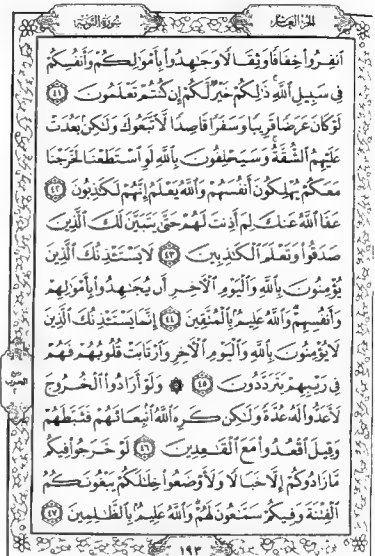 الجزء العاشر
سورة التوبة
ٱنفِرُوا۟ خِفَافًا وَثِقَالًا وَجَـٰهِدُوا۟ بِأَمْوَٰلِكُمْ وَأَنفُسِكُمْ
فِى سَبِيلِ ٱللَّهِ ۚ ذَٰلِكُمْ خَيْرٌ لَّكُمْ إِن كُنتُمْ تَعْلَمُونَ ٤١
لَوْ كَانَ عَرَضًا قَرِيبًا وَسَفَرًا قَاصِدًا لَّٱتَّبَعُوكَ وَلَـٰكِنۢ بَعُدَتْ
عَلَيْهِمُ ٱلشُّقَّةُ ۚ وَسَيَحْلِفُونَ بِٱللَّهِ لَوِ ٱسْتَطَعْنَا لَخَرَجْنَا
مَعَكُمْ يُهْلِكُونَ أَنفُسَهُمْ وَٱللَّهُ يَعْلَمُ إِنَّهُمْ لَكَـٰذِبُونَ ٤٢
عَفَا ٱللَّهُ عَنكَ لِمَ أَذِنتَ لَهُمْ حَتَّىٰ يَتَبَيَّنَ لَكَ ٱلَّذِينَ
صَدَقُوا۟ وَتَعْلَمَ ٱلْكَـٰذِبِينَ ٤٣ لَا يَسْتَـْٔذِنُكَ ٱلَّذِينَ
يُؤْمِنُونَ بِٱللَّهِ وَٱلْيَوْمِ ٱلْـَٔاخِرِ أَن يُجَـٰهِدُوا۟ بِأَمْوَٰلِهِمْ
وَأَنفُسِهِمْ ۗ وَٱللَّهُ عَلِيمٌۢ بِٱلْمُتَّقِينَ ٤٤ إِنَّمَا يَسْتَـْٔذِنُكَ ٱلَّذِينَ
لَا يُؤْمِنُونَ بِٱللَّهِ وَٱلْيَوْمِ ٱلْـَٔاخِرِ وَٱرْتَابَتْ قُلُوبُهُمْ فَهُمْ
فِى رَيْبِهِمْ يَتَرَدَّدُونَ ٤٥ ۞ وَلَوْ أَرَادُوا۟ ٱلْخُرُوجَ
لَأَعَدُّوا۟ لَهُۥ عُدَّةً وَلَـٰكِن كَرِهَ ٱللَّهُ ٱنۢبِعَاثَهُمْ فَثَبَّطَهُمْ
وَقِيلَ ٱقْعُدُوا۟ مَعَ ٱلْقَـٰعِدِينَ ٤٦ لَوْ خَرَجُوا۟ فِيكُم
مَّا زَادُوكُمْ إِلَّا خَبَالًا وَلَأَوْضَعُوا۟ خِلَـٰلَكُمْ يَبْغُونَكُمُ
ٱلْفِتْنَةَ وَفِيكُمْ سَمَّـٰعُونَ لَهُمْ ۗ وَٱللَّهُ عَلِيمٌۢ بِٱلظَّـٰلِمِينَ ٤٧